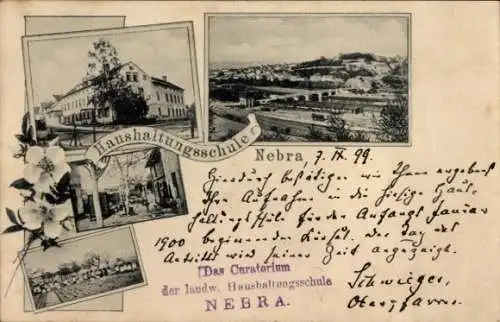 Haushaltungsschule
Nebra, 7. IX. 99
Hierdurch bestätigen wir Ihnen ergebenst
Ihre Aufnahme in die hiesige Haus-
haltungsschule für den Anfang Januar
1900 beginnenden Kursus. Der Tag des
Antritts wird seiner Zeit angezeigt.
Das Curatorium
der landw. Haushaltungsschule
NEBRA.
Schwieger,
Oberpfarrer.